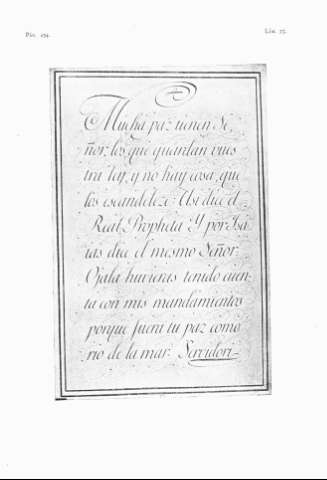 Pág. 194.
Lám. 77.
Mucha paz tienen Se
ñor, los que guardan vues
tra ley, y no hay cosa, que
los escandelize: Asi dice el
Real Propheta. Y por Isa
ias dice el mismo Señor:
Ojala huvieras tenido cuen
ta con mis mandamientos
porque fuera tu paz como
rio de la mar. Servidori